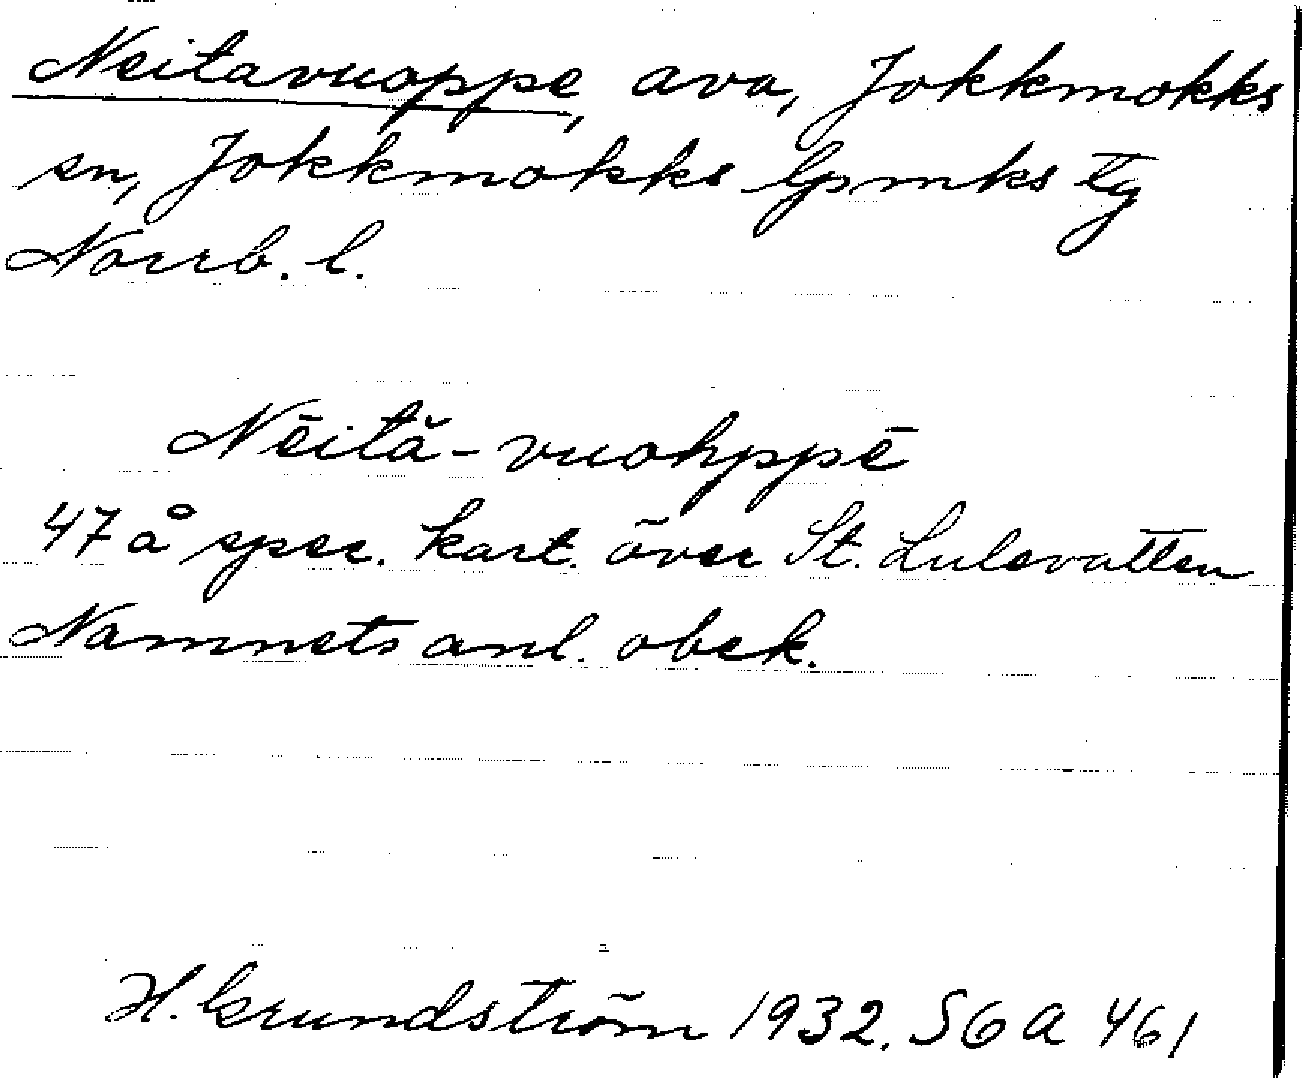 Neitavuoppe, ava, Jokkmokks
sn, Jokkmokks lpmks tg
Norrb. l.
Nēită-vuohppē
47 å spec. kart. över St. Lulevatten
Namnets anl. obek.
H. Grundström 1932. SGA 461